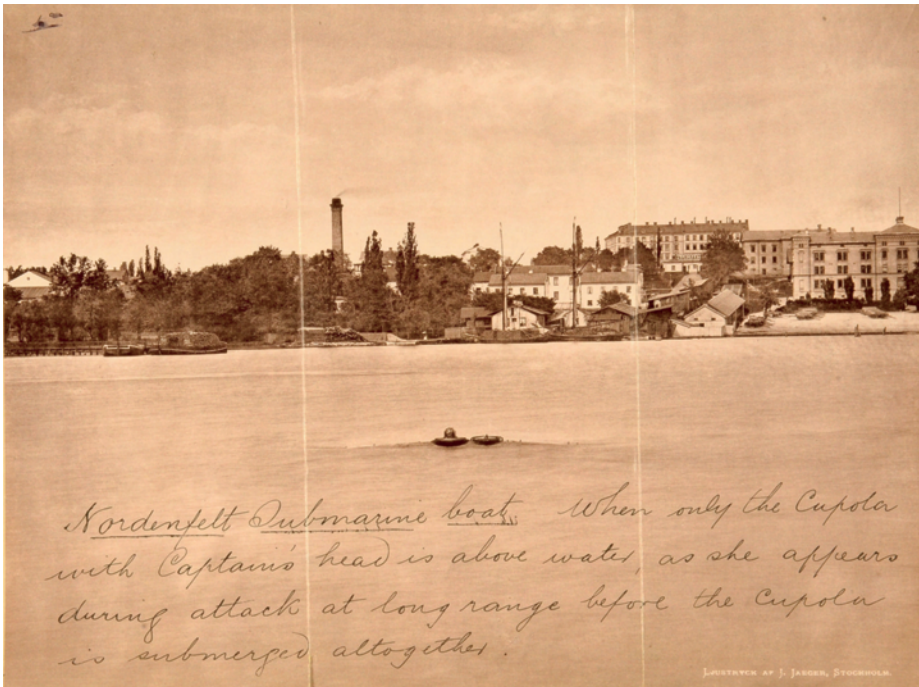 Nordenfelt Submarine boat. When only the Cupola
with Captain's head is above water, as she appears
during attack at long range before the Cupola
is submerged altogether.
LJUSTRYCK AF J. JAEGER, STOCKHOLM.